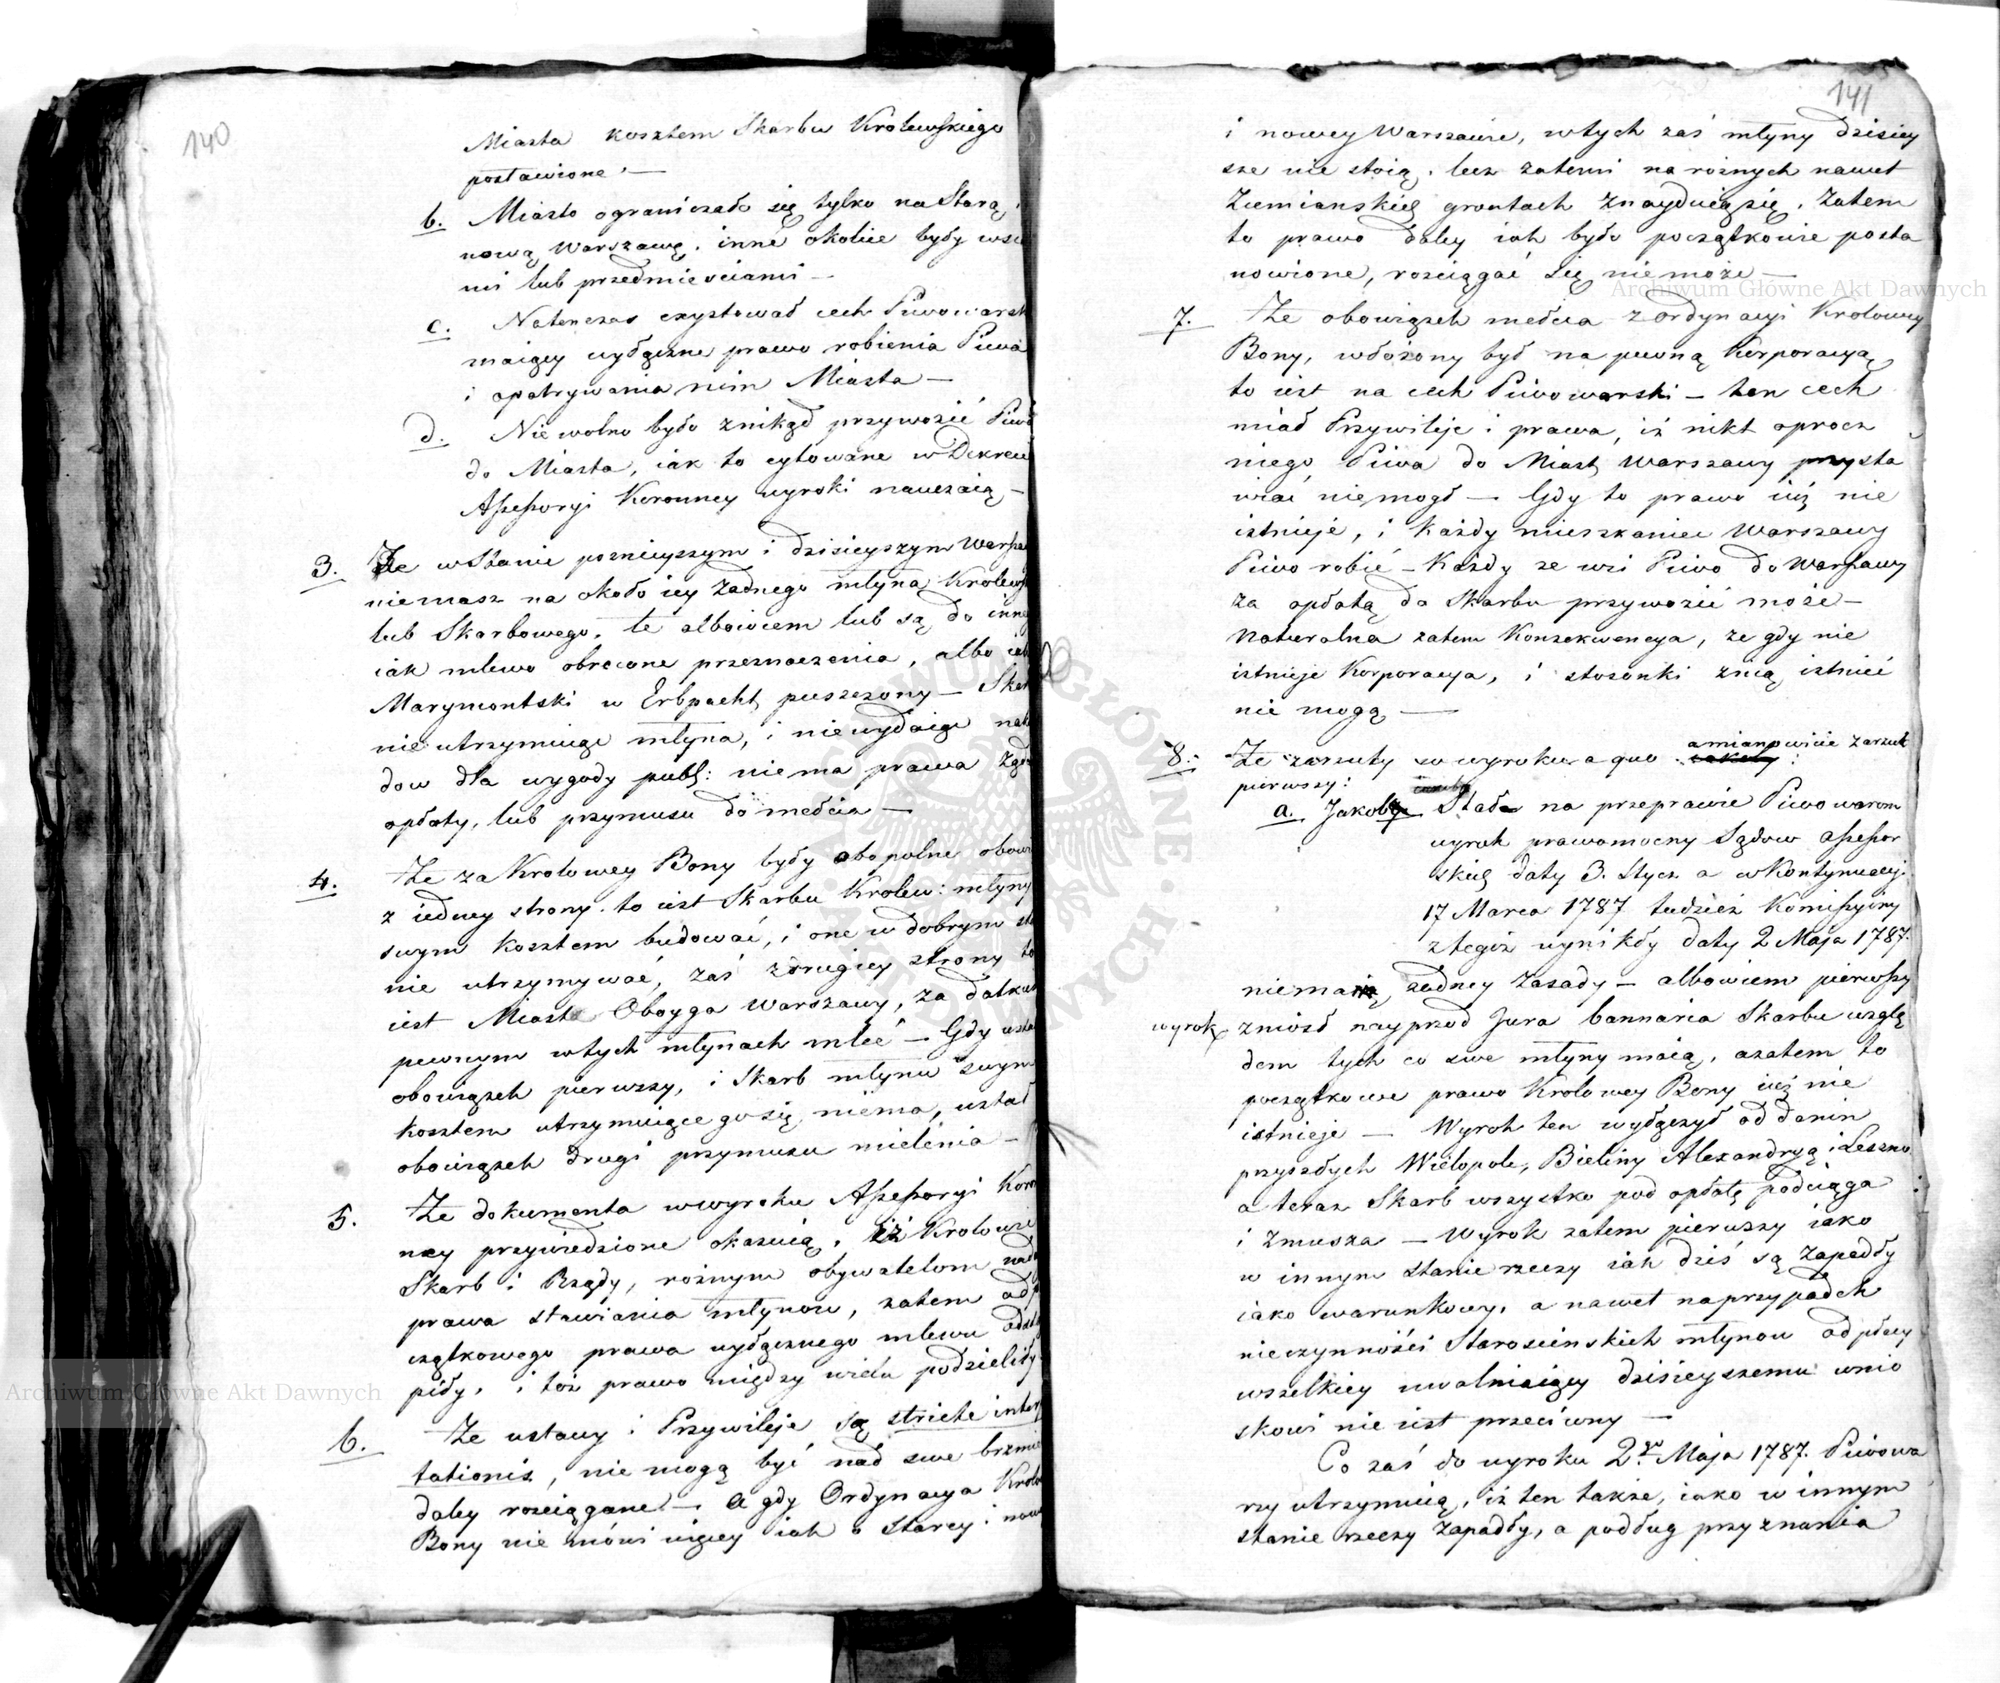 140
Miasta kosztem Skarbu Krolewskiego
postawione. —
b. Miasto ograniczało się tylko na Starą i
nową Warszawę, inne okolice były wsia
mi lub przedmieściami —
c. Natenczas exystował cech Piwowarsk
maiący wyłączne prawo robienia Piwa
i opatrywania nim Miasta —
d. Nie wolno było znikąd przywozić Piwa
do Miasta, iak to cytowane w Dekreci
Assessoryi Koronney wyroki nauczaią —
3. Że w Stanie poznieyszym i dzisieyszym Warsza
niemasz na około iey żadnego młyna Krolews
lub Skarbowego, te albowiem lub są do inne
iak mlewo obrocone przeznaczenia, albo iak
Marymontski w Erbpacht puszczony — Skar
nie utrzymuiąc młyna, i nie wydaiąc nak
dow dla wygody publ: nie ma prawa żąda
opłaty, lub przymusu do mełcia —
4. Że za Krolowey Bony były obopolne obowi
z iedney strony, to iest Skarbu Krolew: młyny
swym kosztem budować, i one w dobrym sta
nie utrzymywać, zaś z drugiey strony to
iest Miasta Oboyga Warszawy, za datkiem
pewnym w tych młynach mleć — Gdy usta
obowiązek pierwszy, i Skarb młynu swym
kosztem utrzymuiącego się niema, ustał
obowiązek drugi przymusu mielenia —
5. Że dokumenta w wyroku Assessoryi Koron
ney przywiedzione okazuią, iż Krolowie
Skarb i Rządy, roznym obywatelom nada
prawa stawiania młynow, zatem od p
czątkowego prawa wyłącznego mlewu odstą
piły, i toż prawo między wielu podzieliły.
6. Że ustawy i Przywileje są stricte interp
tationis, nie mogą być nad swe brzmie
daley rosciągane — a gdy Ordynacya Krolo
Bony nie mówi więcy iak o Starey i nowe
141
i nowey Warszawie, w tych zaś młyny dzisiey
sze nie stoią, lecz zatemi na roznych nawet
Ziemianskich gruntach znayduią się, Zatem
to prawo daley iak było początkowie posta
nowione, rosciągać się nie może —
7. Że obowiązek mełcia z Ordynacyi Krolowey
Bony, włożony był na pewną Korporacyą,
to iest na cech Piwowarski — ten cech
miał Przywileje i prawa, iż nikt oprocz
niego Piwa do Miast Warszawy przysta
wiać nie mogł — Gdy to prawo iuż nie
istnieje, i każdy mieszkaniec Warszawy
Piwo robić — Każdy ze wsi Piwo do Warszawy
za opłatą do Skarbu przywozić może —
Naturalna zatem Konsekwencya, że gdy nie
istnieje Korporacya, i stosunki z nią istnieć
nie mogą —
8. Że zarzuty w wyroku a quo amianowicie zarzut
pierwszy:
a. Jakoby Stał na przeprawie Piwowarom
wyrok prawomocny Sądow Assessor
skich daty 3. Stycz a w Kontynuacyi
17 Marca 1787 tudzież Komissyiny
z tegoż wynikły daty 2 Maja 1787.
niemaią żadney Zasady — albowiem pierwszy
wyrok zniosł nayprzod Jura bannaria Skarbu wzglę
dem tych co swe młyny maią, azatem to
początkowe prawo Krolowey Bony iuż nie
istnieje — Wyrok ten wyłączył od danin
przyszłych Wielopole, Bieliny Alexandryą i Leszno
a teraz Skarb wszystko pod opłatę podciąga
i zmusza — Wyrok zatem pierwszy iako
w innym stanie rzeczy iak dziś są zapadły
iako warunkowy, a nawet na przypadek
nieczynności Staroscinskich młynow od płacy
wszelkiey uwalniaiący dzisieyszemu wnio
skowi nie iest przeciwny —
Co zaś do wyroku 2go Maja 1787. Piwowa
rzy utrzymuią, iż ten także, iako w innym
stanie rzeczy zapadły, a podług przyznania
Archiwum Główne Akt Dawnych
Archiwum Główne Akt Dawnych